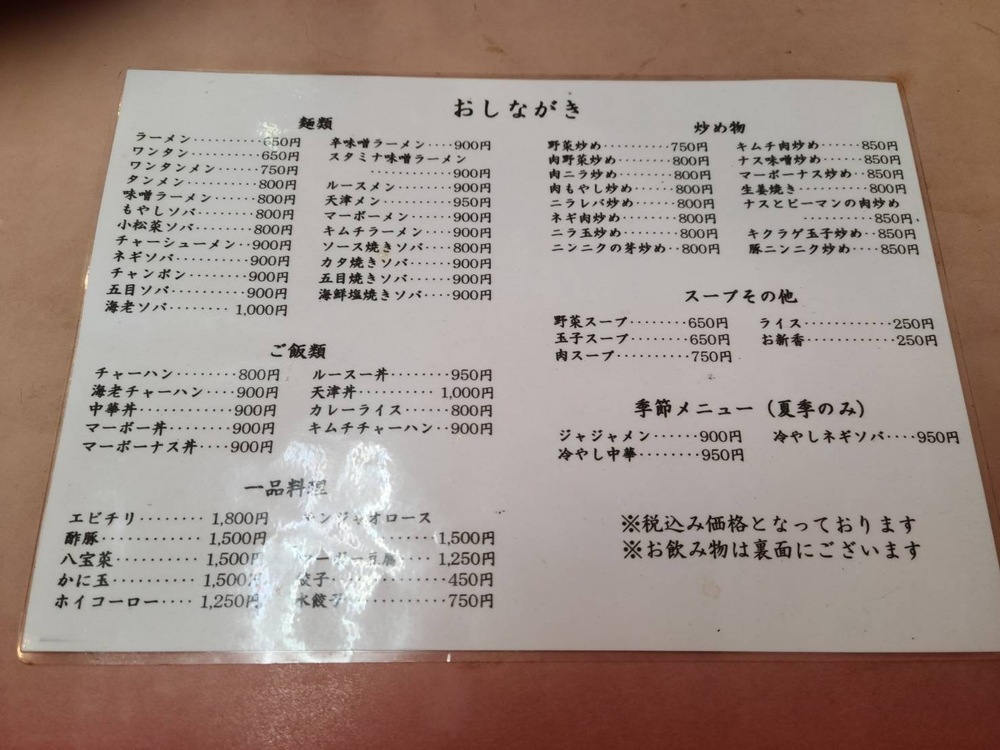 おしながき
麺類
ラーメン・・・・・・・・・・650円
ワンタン・・・・・・・・・・650円
ワンタンメン・・・・・・・750円
タンメン・・・・・・・・・・800円
味噌ラーメン・・・・・・・800円
もやしソバ・・・・・・・・800円
小松菜ソバ・・・・・・・・800円
チャーシューメン・・900円
ネギソバ・・・・・・・・・・900円
チャンポン・・・・・・・・900円
五目ソバ・・・・・・・・・・900円
海老ソバ・・・・・・・・ 1,000円
辛味噌ラーメン・・・・900円
スタミナ味噌ラーメン
・・・・・・・・・・・900円
ルースメン・・・・・・・・900円
天津メン・・・・・・・・・・950円
マーボーメン・・・・・・900円
キムチラーメン・・・・900円
ソース焼きソバ・・・・800円
カタ焼きソバ・・・・・・900円
五目焼きソバ・・・・・・900円
海鮮塩焼きソバ・・・・900円
ご飯類
チャーハン・・・・・・・・800円
海老チャーハン・・・・900円
中華丼・・・・・・・・・・・・900円
マーボー丼・・・・・・・・900円
マーボーナス丼・・・・900円
ルースー丼・・・・・・・・950円
天津丼・・・・・・・・・・ 1,000円
カレーライス・・・・・・800円
キムチチャーハン・・900円
一品料理
エビチリ・・・・・・・・ 1,800円
酢豚・・・・・・・・・・・・ 1,500円
八宝菜・・・・・・・・・・ 1,500円
かに玉・・・・・・・・・・ 1,500円
ホイコーロー・・・・ 1,250円
ンジャオロース
・・・・・1,500円
1,250円
餃子・・・・・・・・・・・・450円
水餃子・・・・・・・・・・750円
炒め物
野菜炒め・・・・・・・・・・750円
肉野菜炒め・・・・・・・・800円
肉ニラ炒め・・・・・・・・800円
肉もやし炒め・・・・・・800円
ニラレバ炒め・・・・・・800円
ネギ肉炒め・・・・・・・・800円
ニラ玉炒め・・・・・・・・800円
ニンニクの芽炒め・・800円
キムチ肉炒め・・・・・・850円
ナス味噌炒め・・・・・・850円
マーボーナス炒め・・850円
生姜焼き・・・・・・・・・・800円
ナスとピーマンの肉炒め
・・・・・・・・・・850円
キクラゲ玉子炒め・・850円
豚ニンニク炒め・・・・850円
スープその他
野菜スープ・・・・・・・・650円
玉子スープ・・・・・・・・650円
肉スープ・・・・・・・・・・750円
ライス・・・・・・・・・・・・250円
お新香・・・・・・・・・・・・250円
季節メニュー（夏季のみ）
ジャジャメン・・・・・・900円
冷やし中華・・・・・・・・950円
冷やしネギソバ・・・・950円
※税込み価格となっております
※お飲み物は裏面にございます